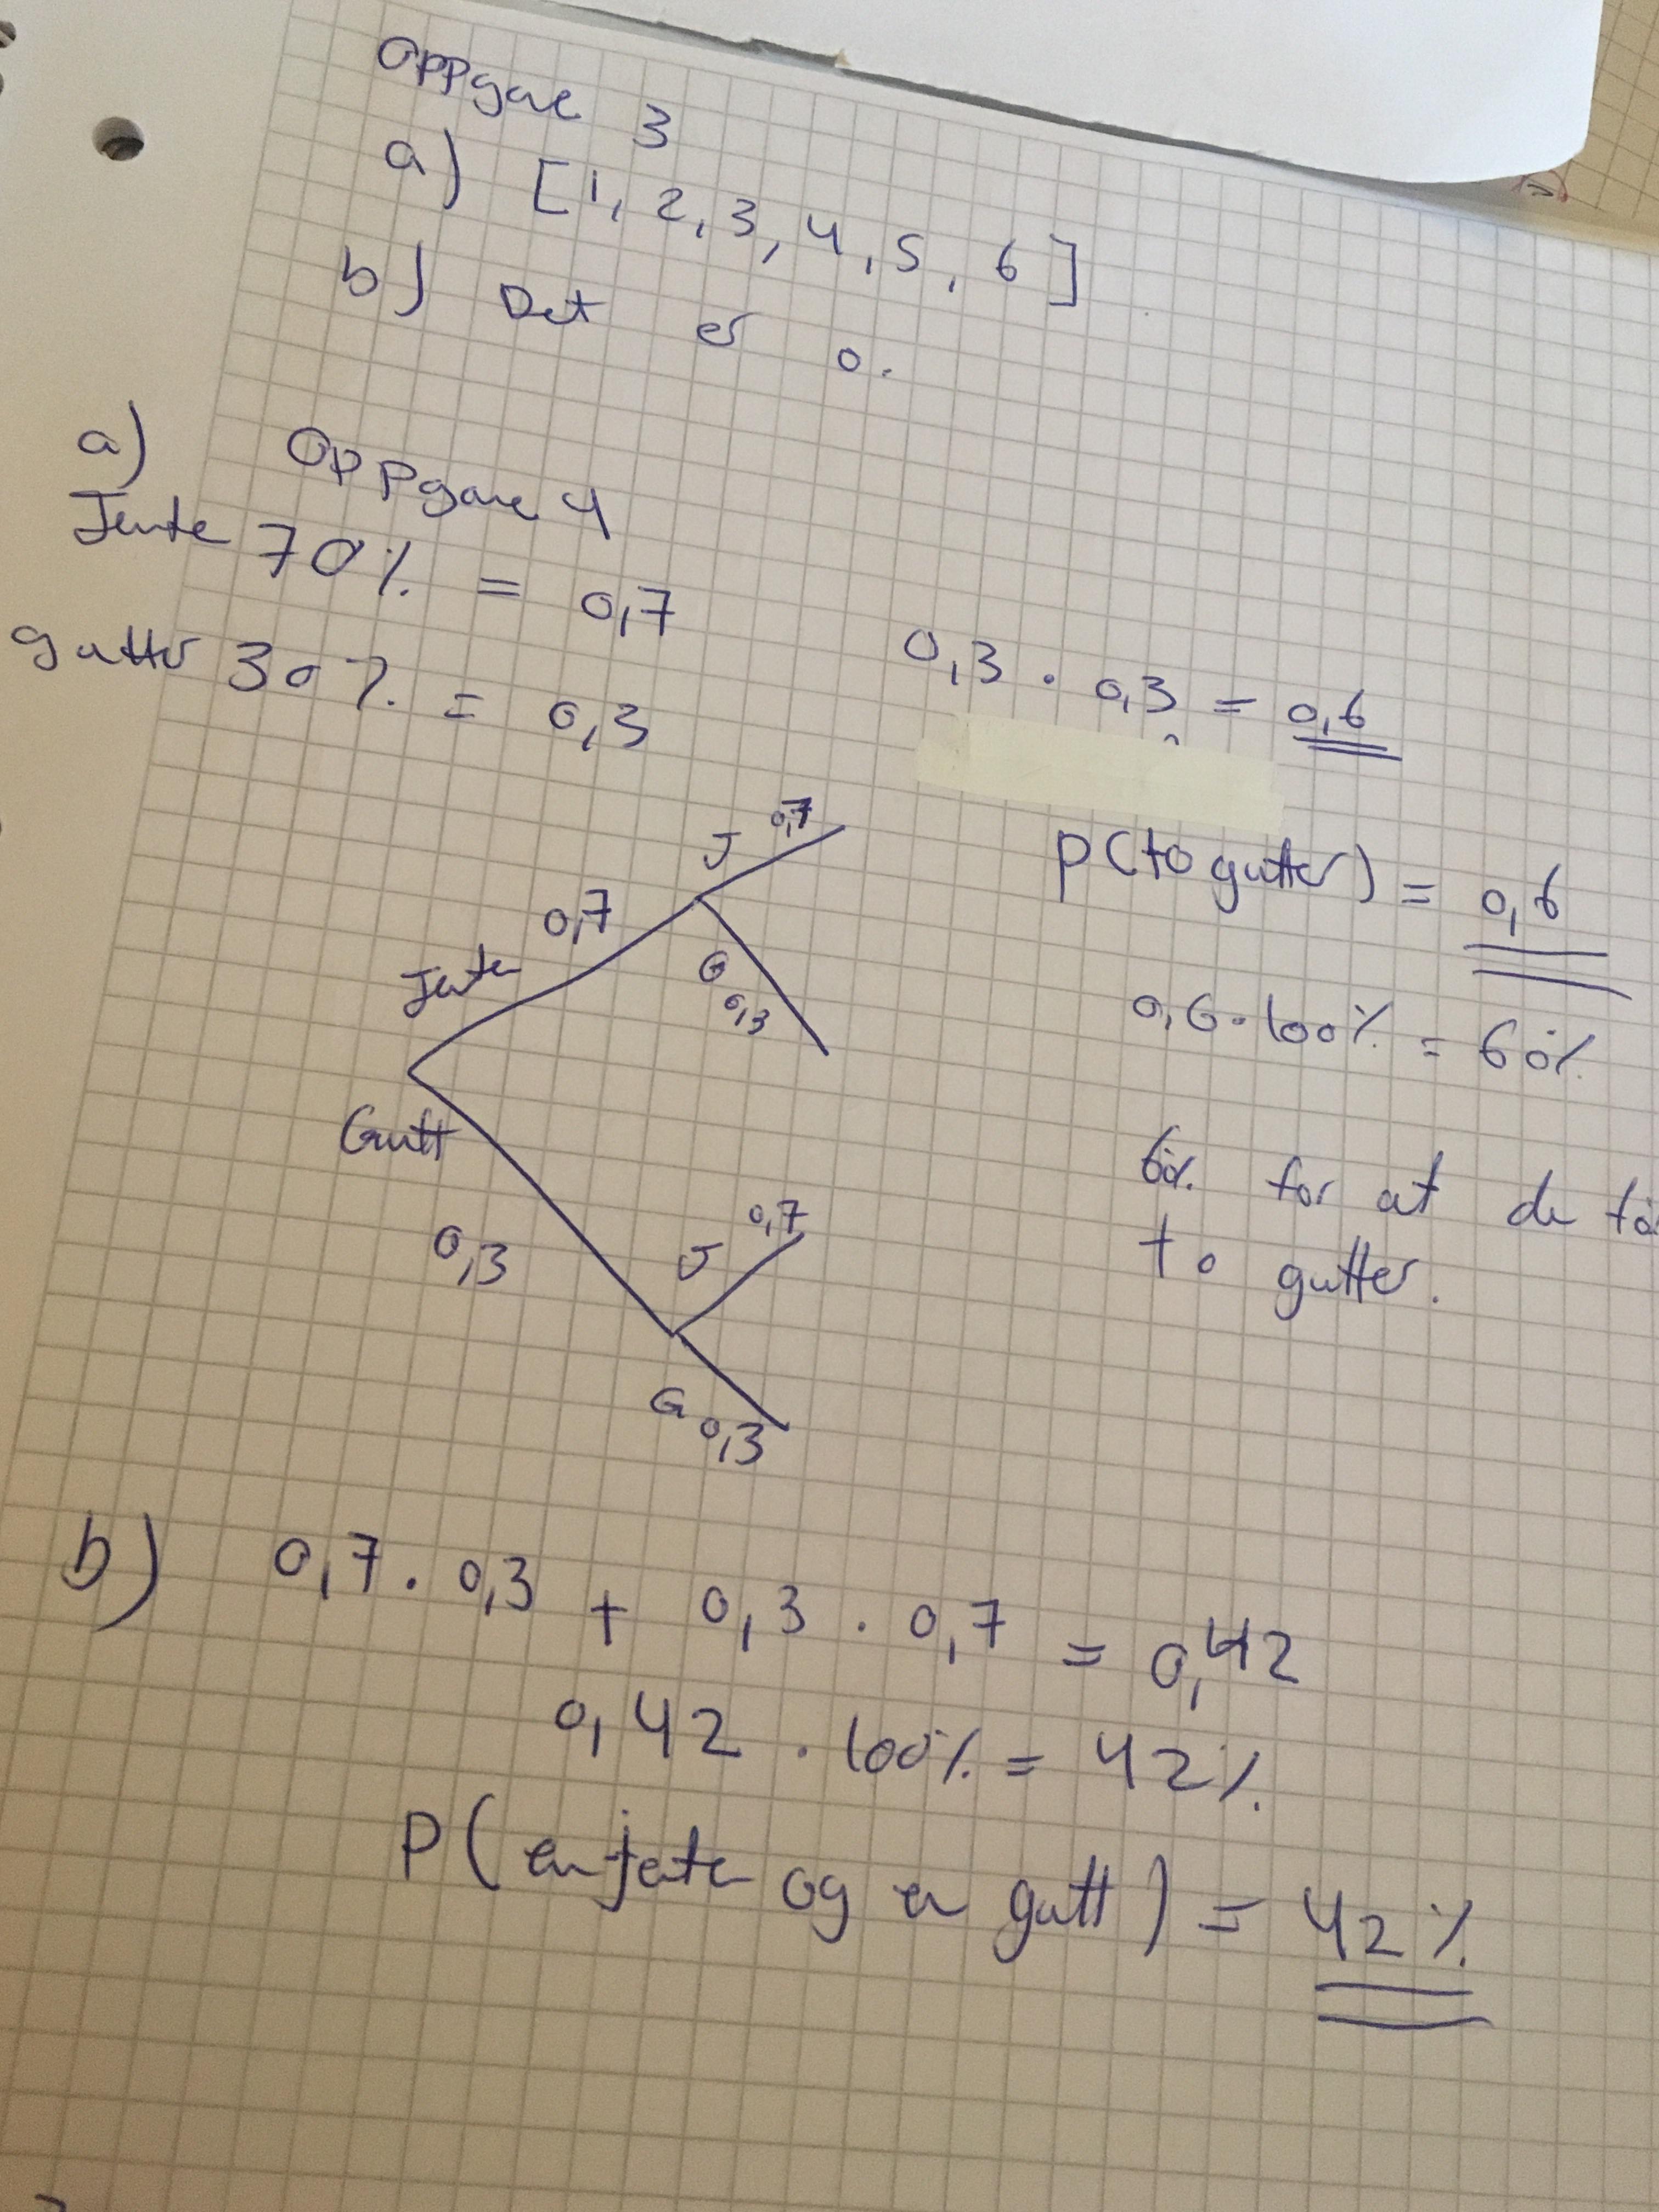 Oppgave 3
a) [1, 2, 3, 4, 5, 6]
b) Det er 0.
a) Oppgave 4
Jente 70% = 0,7
gutter 30% = 0,3
0,3 · 0,3 = 0,6
P(to gutter) = 0,6
0,6 · 100% = 60%
60% for at de får
to gutter.
Jente 0,7
J 0,7
G 0,3
Gutt 0,3
J 0,7
G 0,3
b) 0,7 · 0,3 + 0,3 · 0,7 = 0,42
0,42 · 100% = 42%
P(en jente og en gutt) = 42%